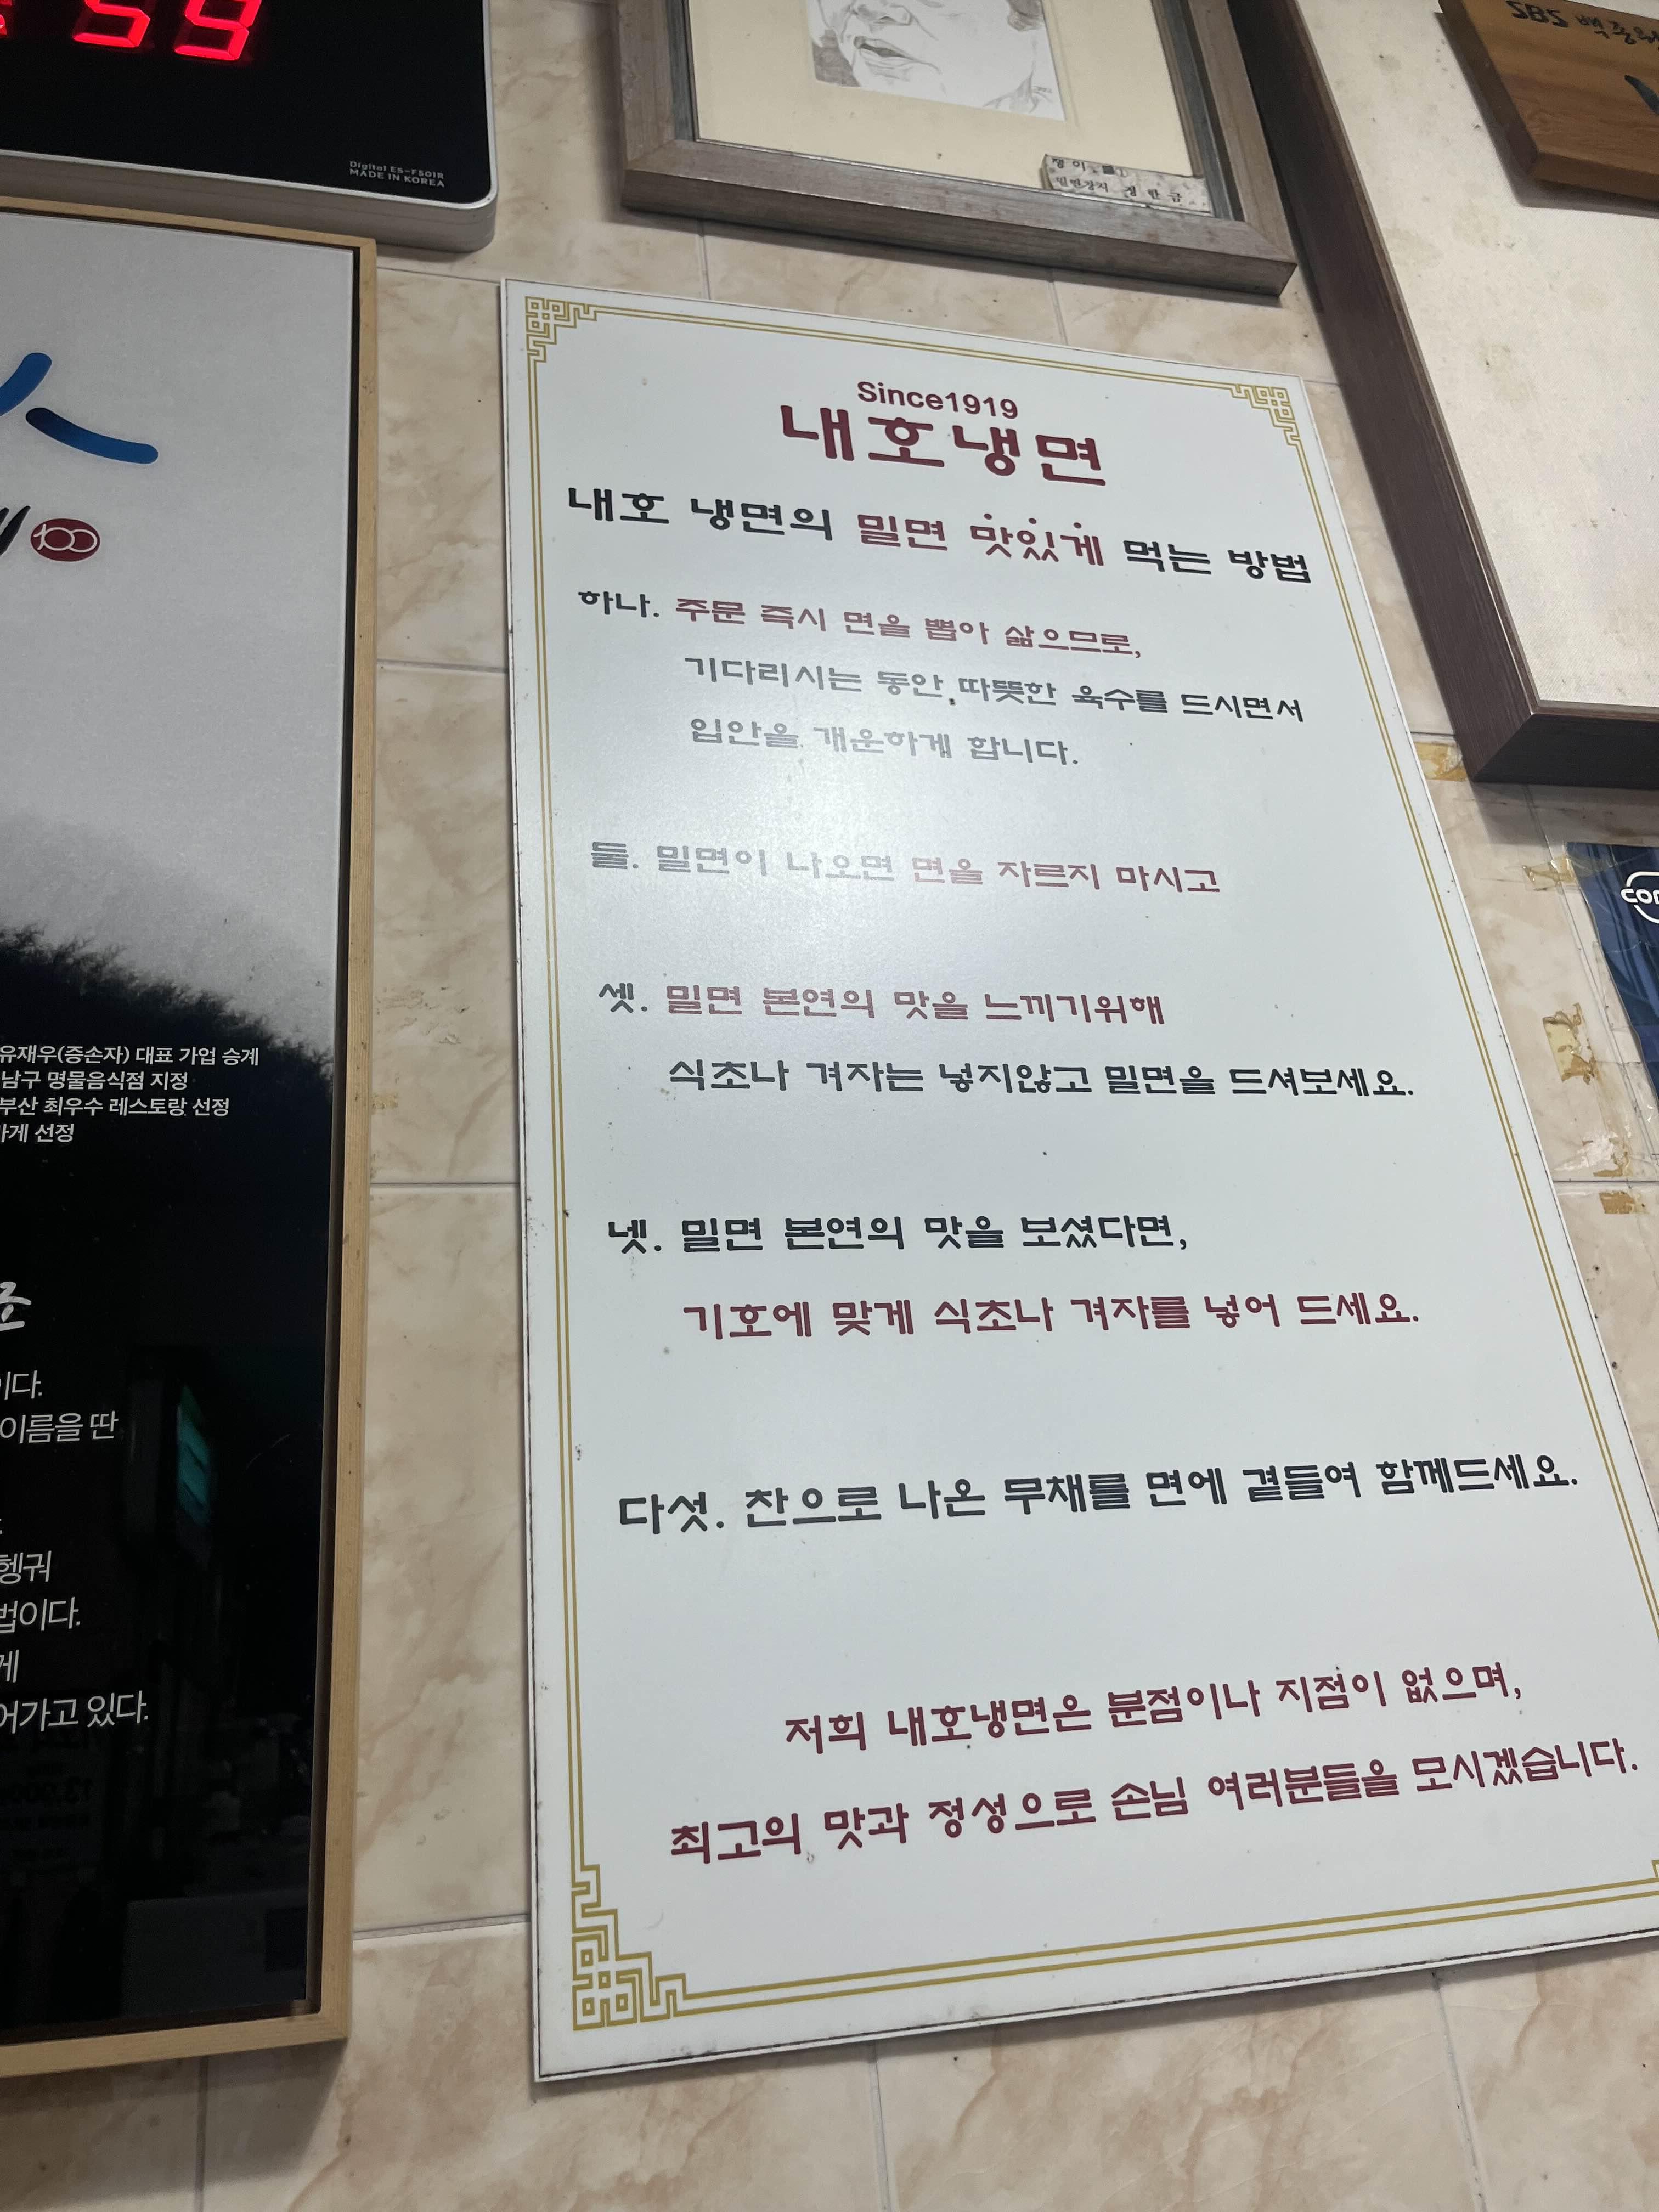 59
Digital ES-F501R
MADE IN KOREA
SBS
100
유재우(증손자) 대표 가업 승계
남구 명물음식점 지정
부산 최우수 레스토랑 선정
가게 선정
이다.
이름을 딴
헹궈
법이다.
게
어가고 있다.
Since1919
내호냉면
내호 냉면의 밀면 맛있게 먹는 방법
하나. 주문 즉시 면을 뽑아 삶으므로,
기다리시는 동안, 따뜻한 육수를 드시면서
입안을 개운하게 합니다.
둘. 밀면이 나오면 면을 자르지 마시고
셋. 밀면 본연의 맛을 느끼기위해
식초나 겨자는 넣지않고 밀면을 드셔보세요.
넷. 밀면 본연의 맛을 보셨다면,
기호에 맞게 식초나 겨자를 넣어 드세요.
다섯. 찬으로 나온 무채를 면에 곁들여 함께드세요.
저희 내호냉면은 분점이나 지점이 없으며,
최고의 맛과 정성으로 손님 여러분들을 모시겠습니다.